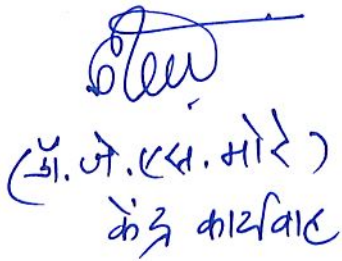 (डॉ. जे. एस. मोरे)
केंद्र कार्यवाह